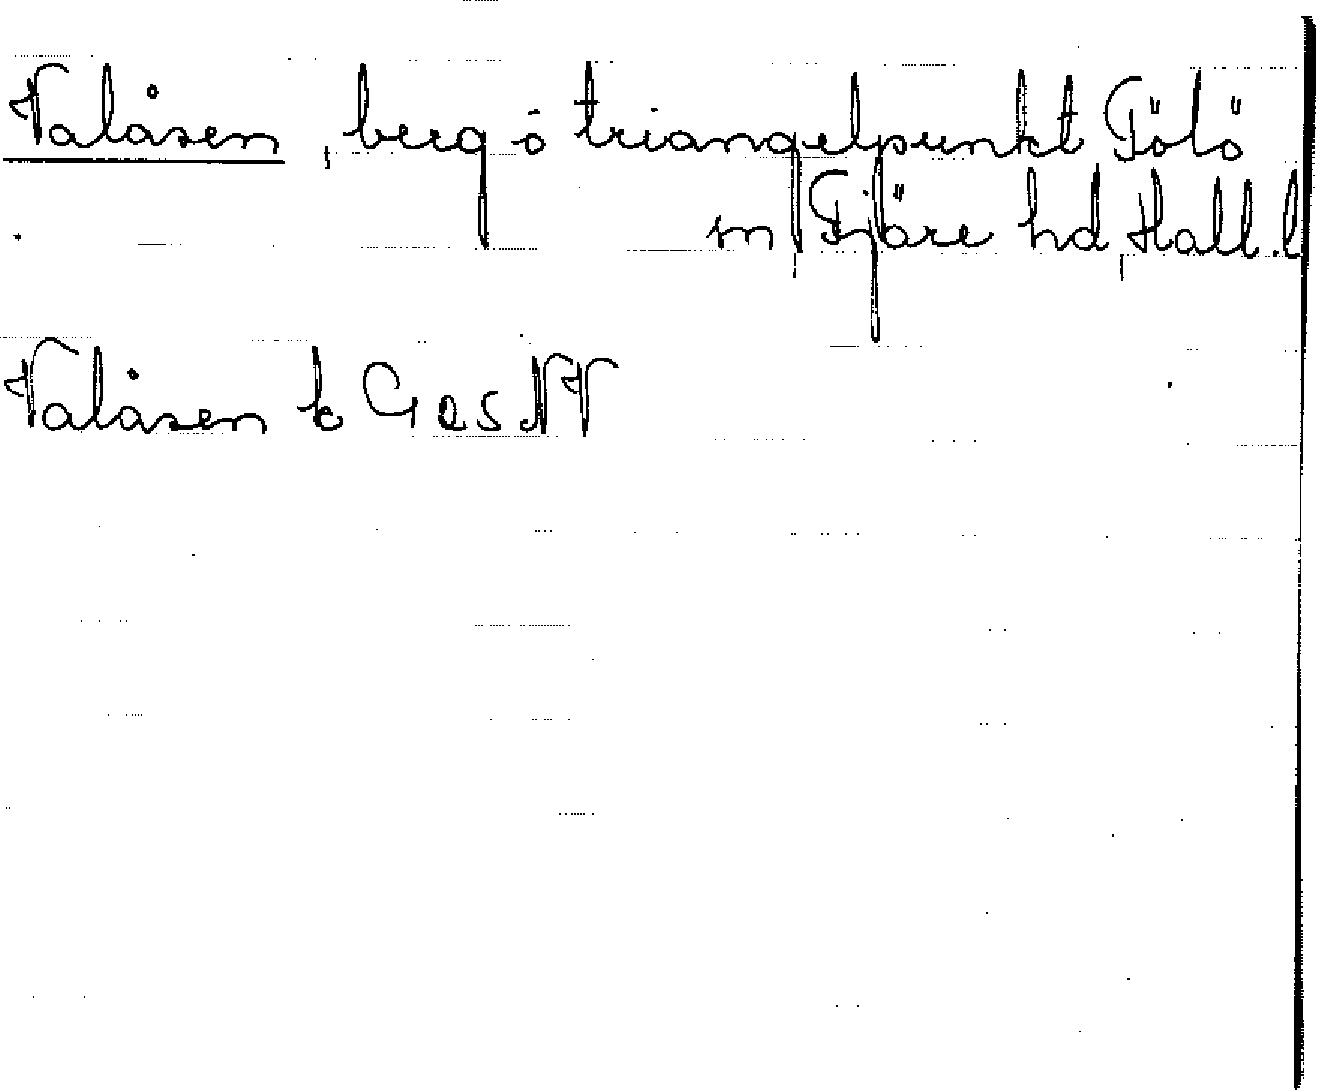 Valåsen, berg o triangelpunkt Fölö
sn, Fjäre hd, Hall. l
Valåsen k G Q S NV